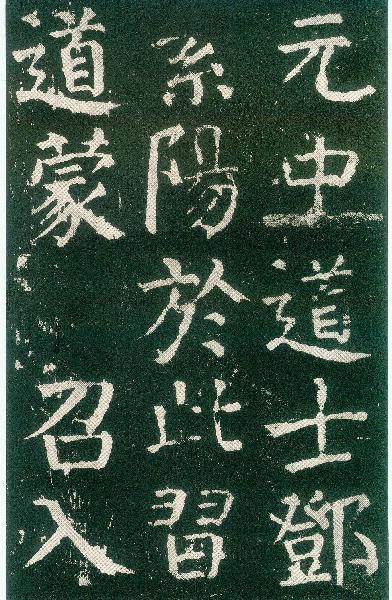 元中道士鄧
糸陽於此習
道蒙 召入